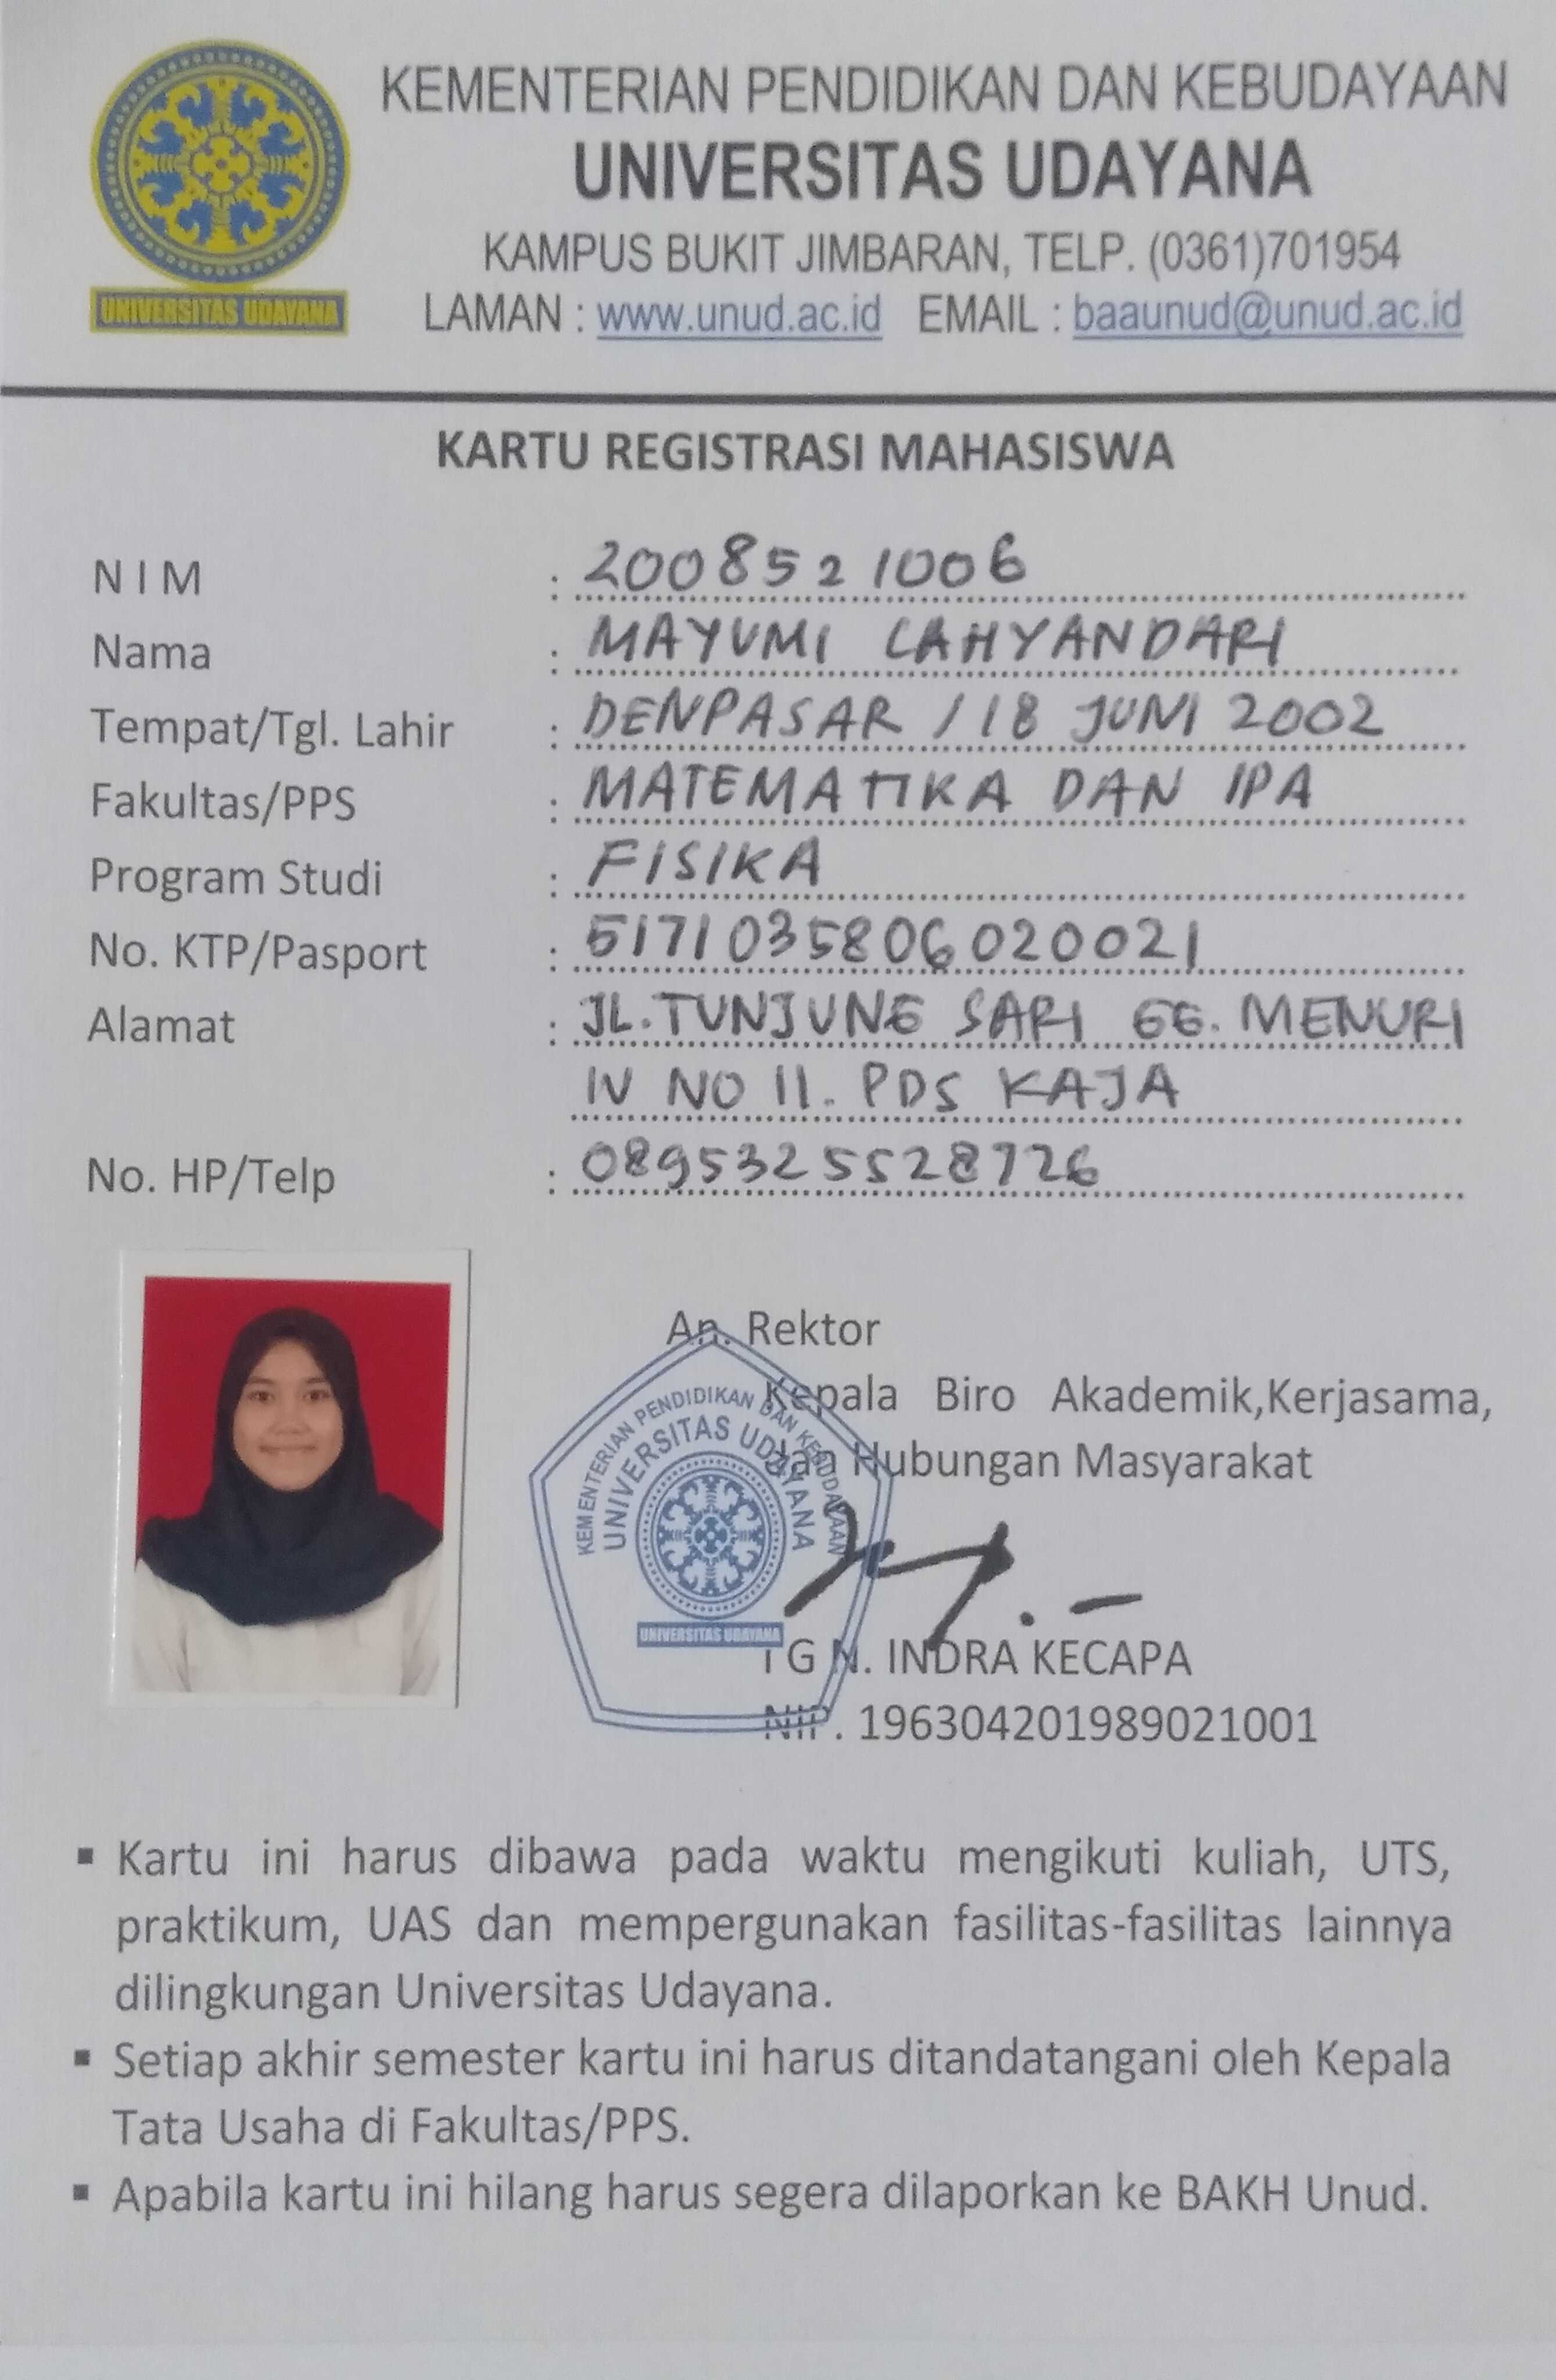 KEMENTERIAN PENDIDIKAN DAN KEBUDAYAAN
UNIVERSITAS UDAYANA
KAMPUS BUKIT JIMBARAN, TELP. (0361)701954
LAMAN : www.unud.ac.id EMAIL : baaunud@unud.ac.id
UNIVERSITAS UDAYANA
KARTU REGISTRASI MAHASISWA
N I M : 2008521006
Nama : MAYUMI CAHYANDARI
Tempat/Tgl. Lahir : DENPASAR / 18 JUNI 2002
Fakultas/PPS : MATEMATIKA DAN IPA
Program Studi : FISIKA
No. KTP/Pasport : 5171035806020021
Alamat : JL.TUNJUNG SARI GG. MENURI
IV NO 11. PDS KAJA
No. HP/Telp : 0895325528726
An. Rektor
Kepala Biro Akademik,Kerjasama,
dan Hubungan Masyarakat
KEMENTERIAN PENDIDIKAN DAN KEBUDAYAAN
UNIVERSITAS UDAYANA
UNIVERSITAS UDAYANA
I G N. INDRA KECAPA
NIP. 196304201989021001
▪ Kartu ini harus dibawa pada waktu mengikuti kuliah, UTS,
praktikum, UAS dan mempergunakan fasilitas-fasilitas lainnya
dilingkungan Universitas Udayana.
▪ Setiap akhir semester kartu ini harus ditandatangani oleh Kepala
Tata Usaha di Fakultas/PPS.
▪ Apabila kartu ini hilang harus segera dilaporkan ke BAKH Unud.